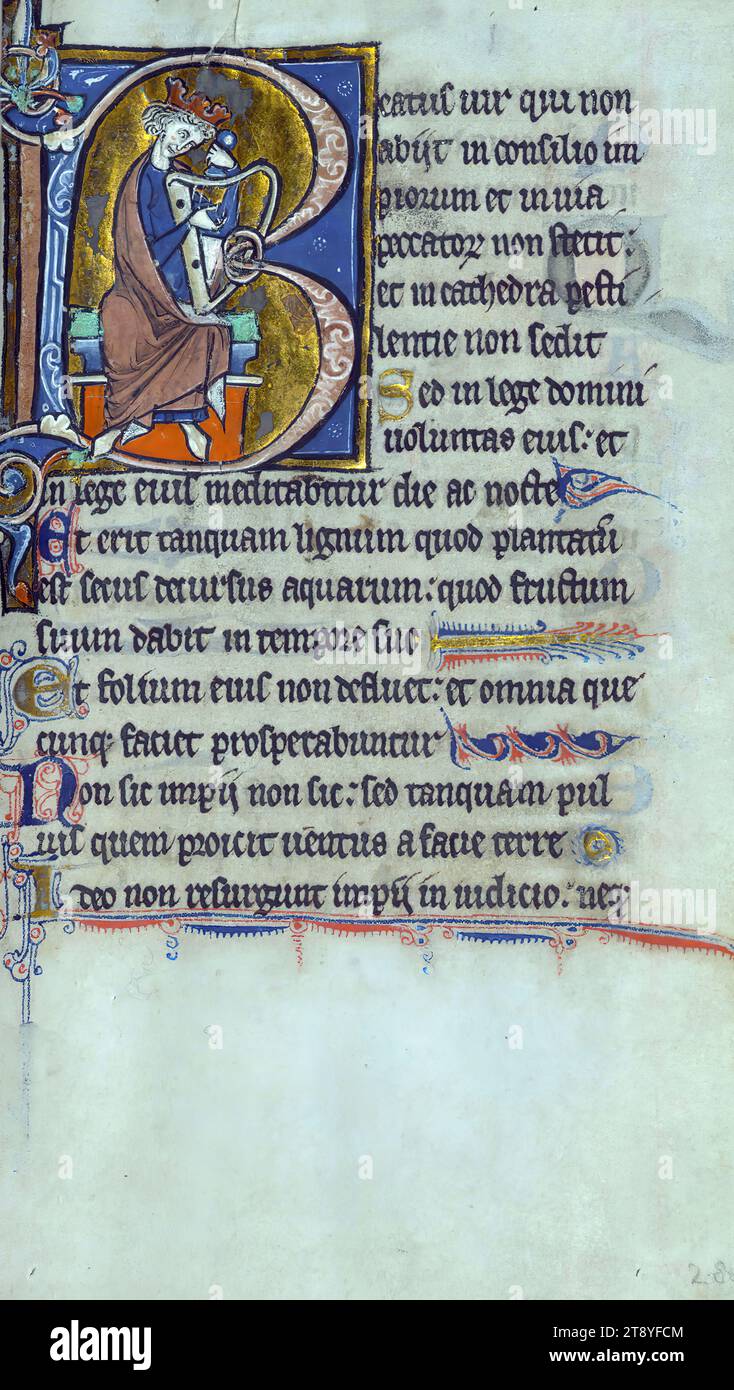 Beatus uir qui non
abijt in consilio im
piorum et in uia
peccatoꝝ non stetit:
et in cathedra pesti
lentie non sedit
Sed in lege domini
uoluntas eius: et
in lege eius meditabitur die ac nocte
Et erit tanquam lignum quod plantatū
est secus decursus aquarum: quod fructum
suum dabit in tempore suo
Et folium eius non defluet: et omnia que
cunqꝫ faciet prosperabuntur
Non sic impij non sic: sed tanquam pul
uis quem proicit uentus a facie terre
Ideo non resurgunt impij in iudicio: neqꝫ
alamy
Image ID: 2T8YFCM
www.alamy.com